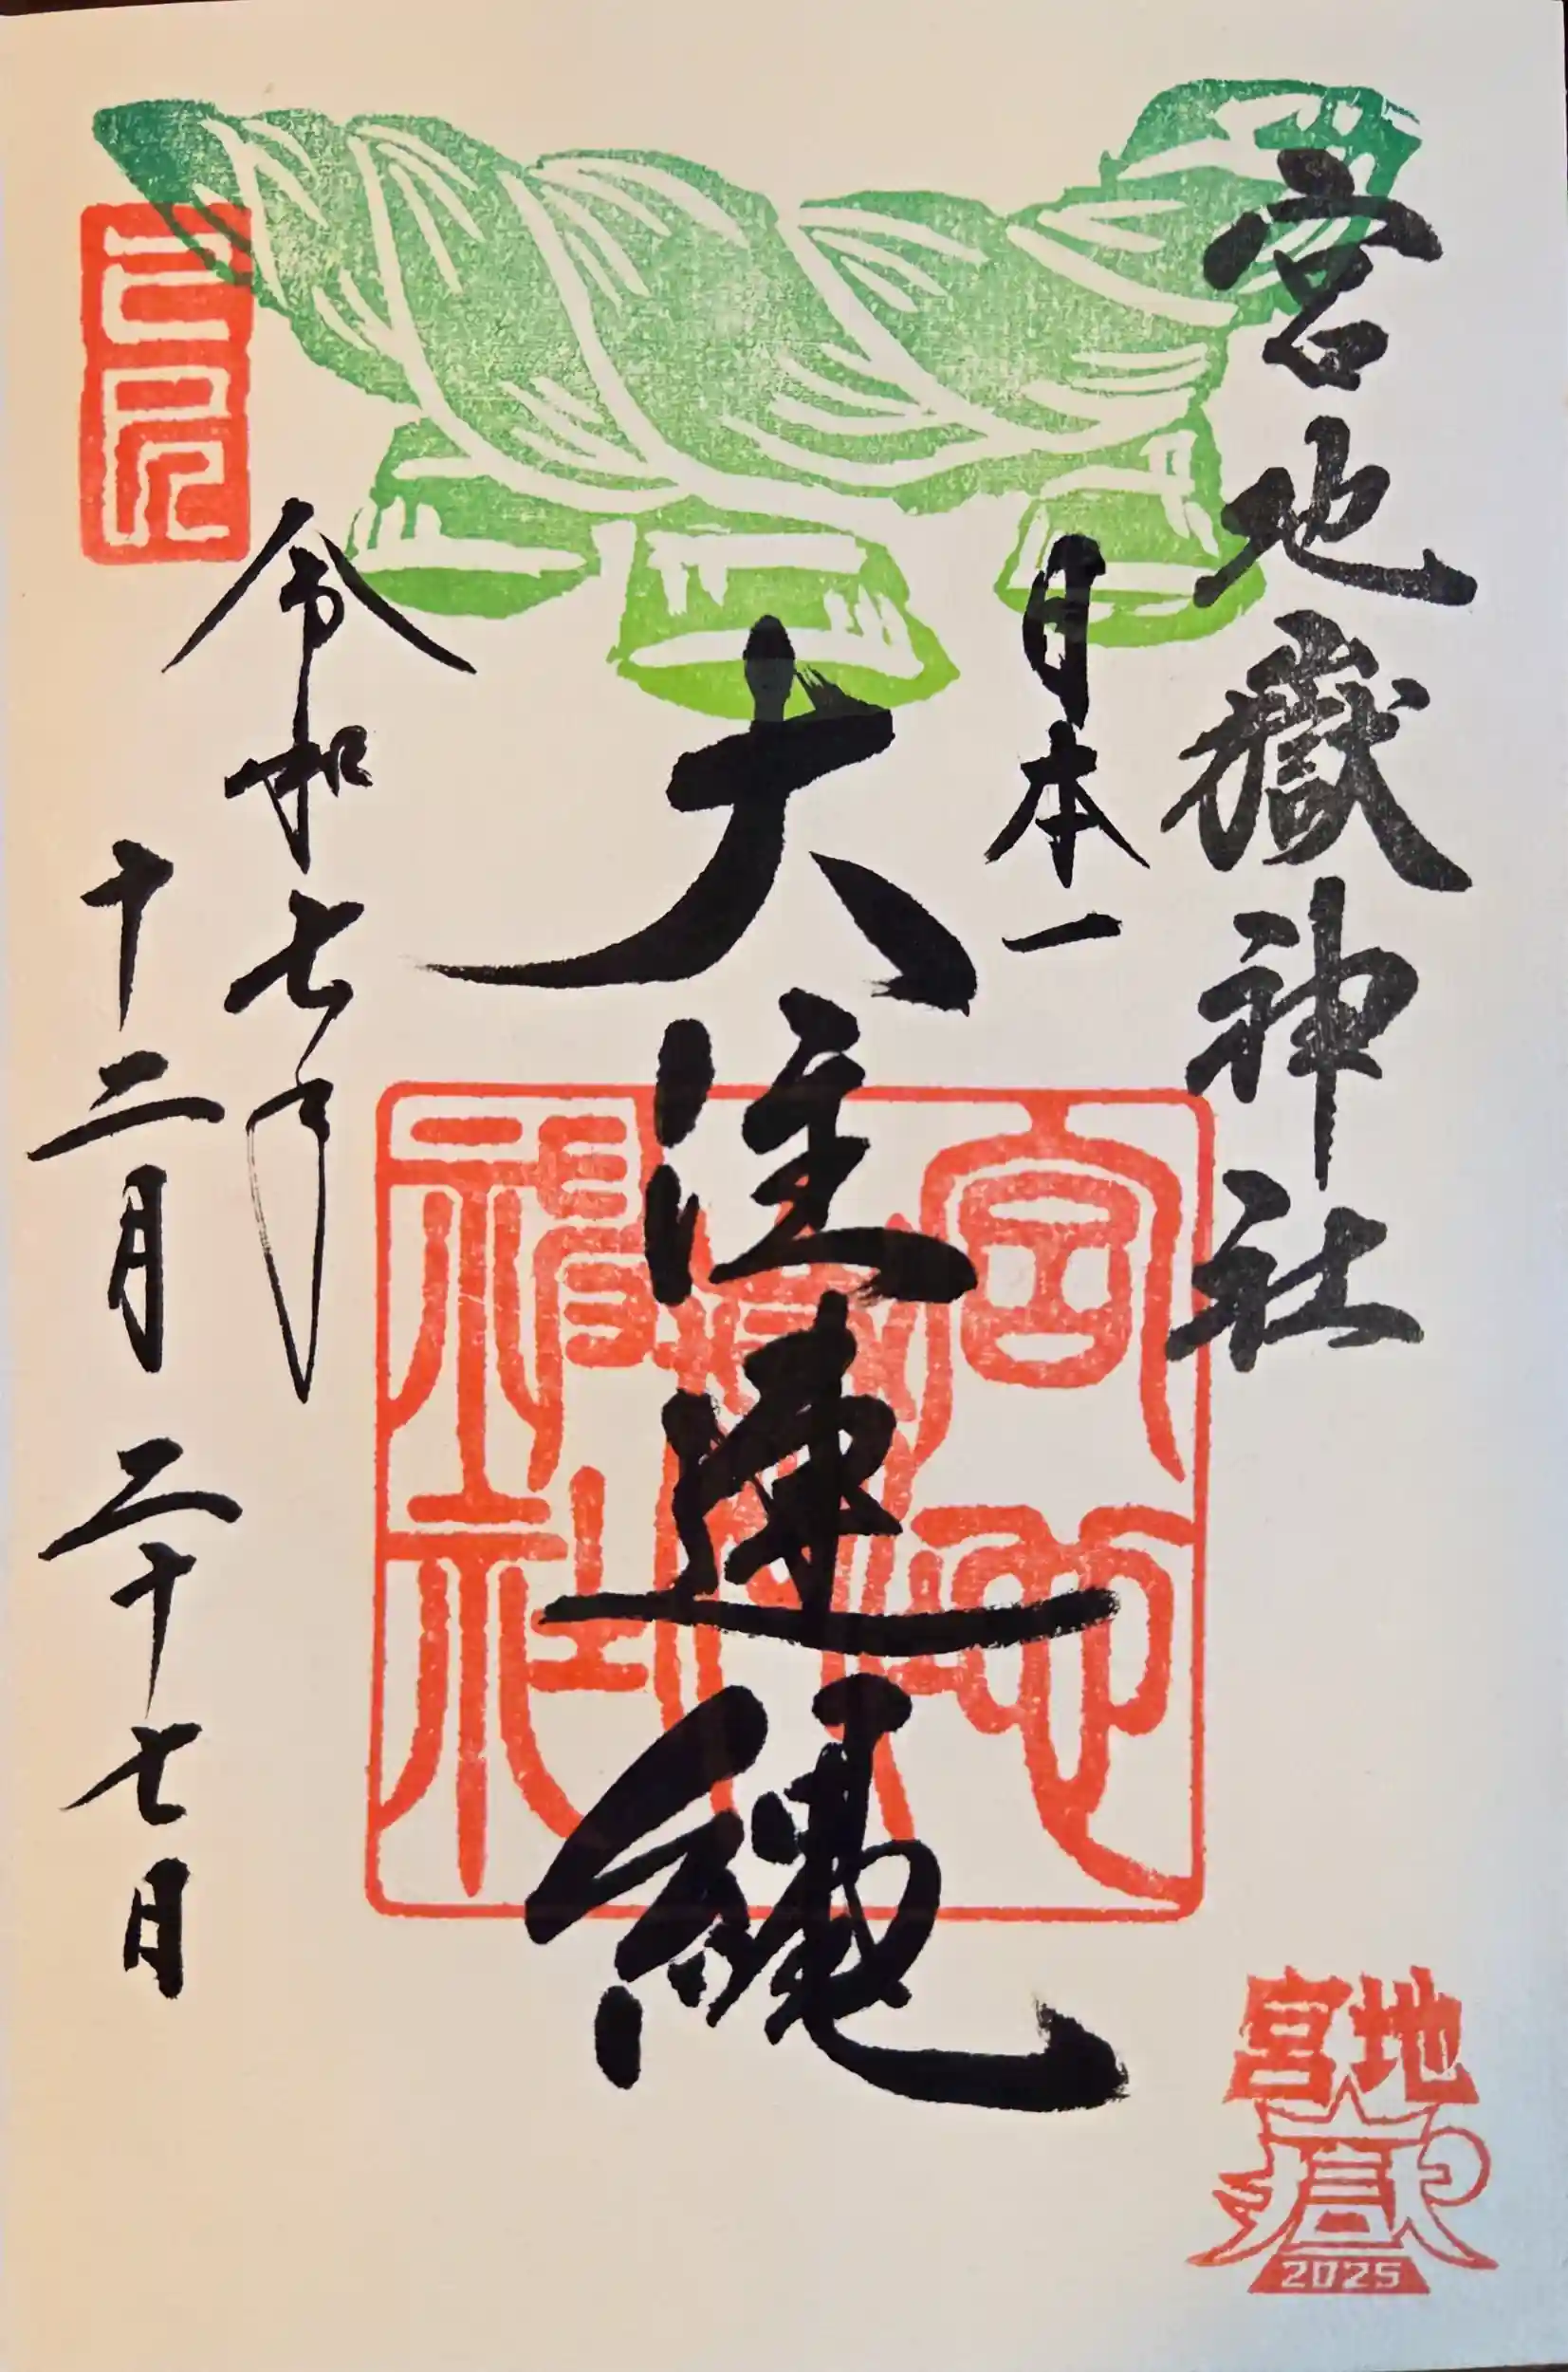 宮地嶽神社
日本一
大注連縄
令和七年
十二月二十七日
宮地嶽神社
宮地
嶽
2025